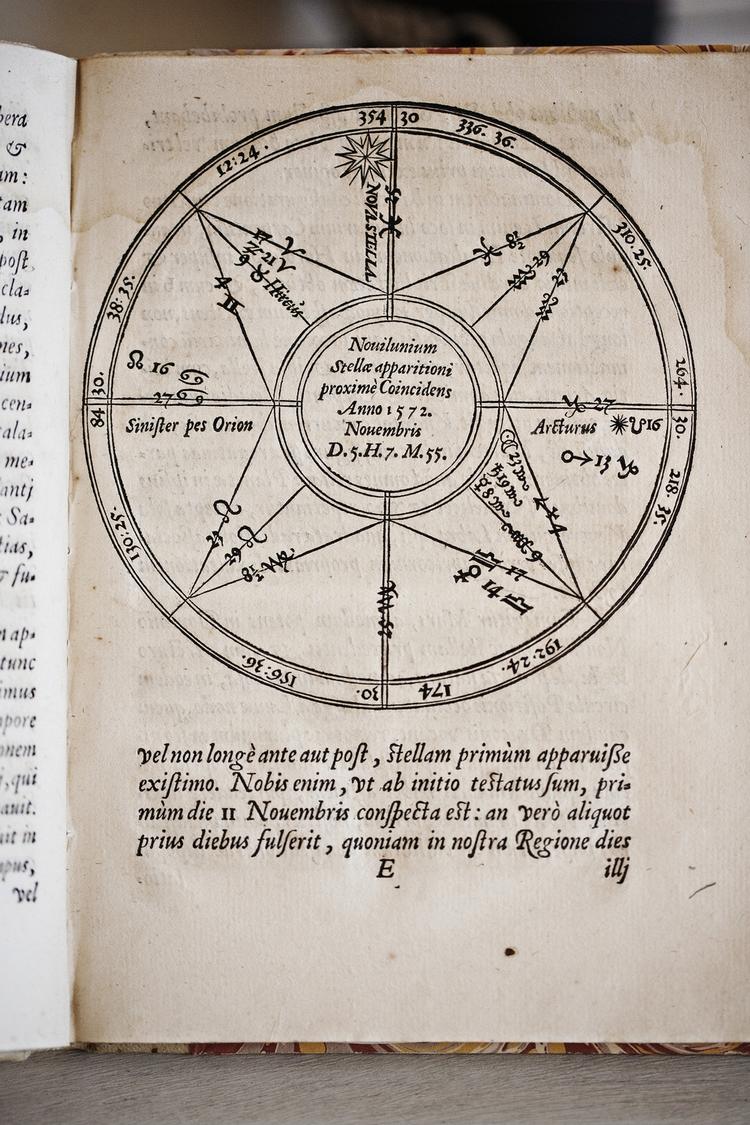 bera
&
am:
tam
, in
post,
cla-
lus,
mes,
ium
cen-
tala-
me-
lantj
Sa-
tias,
fu-
n ap-
tunc
imus
pore
onem
j, qui
auit.
uit in
pus,
vel
354 30
336. 36.
12:24.
NOVA STELLA
310.25:
♓
♈
♉ Hircus
♊ 4
38:35.
♌ 16 ♋
27 ♋
84 30.
Sinister pes Orion
Nouilunium
Stellæ apparitioni
proximè Coincidens
Anno 1572.
Nouembris
D. 5. H. 7. M. 55.
♑ 27
264.
30.
Arcturus
♂ 13 ♑
218. 35.
130:25.
156:36.
30.
174
192:24.
vel non longè ante aut post, stellam primùm apparuisse
existimo. Nobis enim, vt ab initio testatus sum, pri-
mùm die 11 Nouembris conspecta est: an verò aliquot
prius diebus fulserit, quoniam in nostra Regione dies
E illj